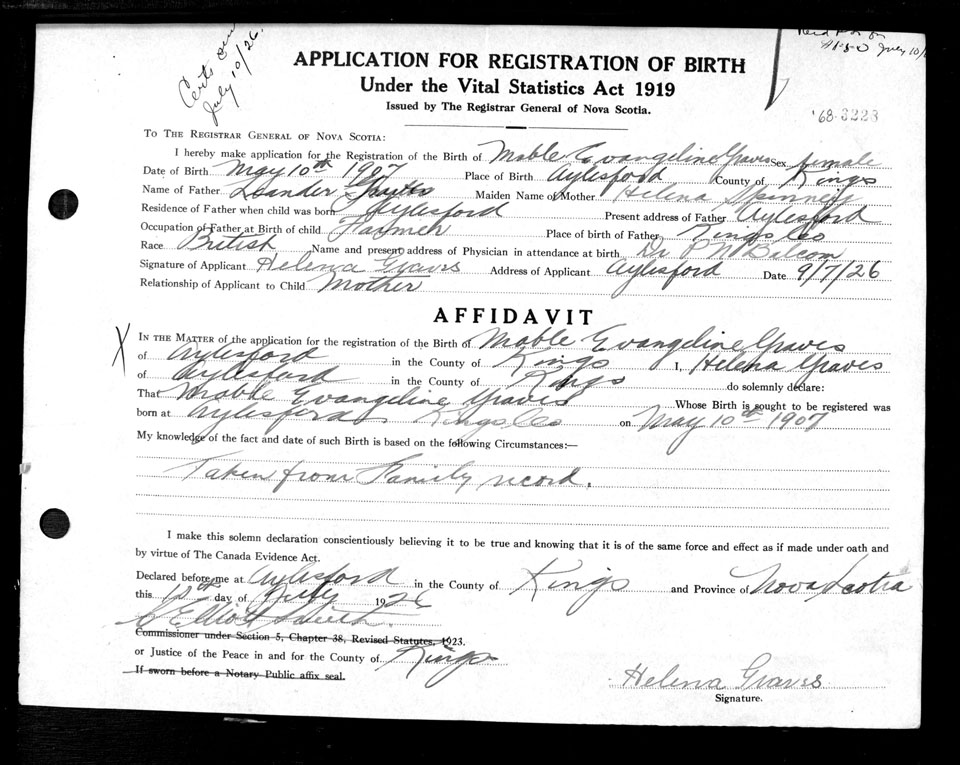 Certs
July 10/26.
July 10/
APPLICATION FOR REGISTRATION OF BIRTH
Under the Vital Statistics Act 1919
Issued by The Registrar General of Nova Scotia.
'68-3223
TO THE REGISTRAR GENERAL OF NOVA SCOTIA:
I hereby make application for the Registration of the Birth of Mable Evangeline Graves Sex female
Date of Birth May 10th 1907 Place of Birth Aylesford County of Kings
Name of Father Leander Graves Maiden Name of Mother Helena Spinney
Residence of Father when child was born Aylesford Present address of Father Aylesford
Occupation of Father at Birth of child Farmer Place of birth of Father Kings Co
Race British Name and present address of Physician in attendance at birth Dr P N Balcom
Signature of Applicant Helena Graves Address of Applicant Aylesford Date 9/7/26
Relationship of Applicant to Child Mother
AFFIDAVIT
X IN THE MATTER of the application for the registration of the Birth of Mable Evangeline Graves
of Aylesford in the County of Kings I, Helena Graves
of Aylesford in the County of Kings do solemnly declare:
That Mable Evangeline Graves Whose Birth is sought to be registered was
born at Aylesford, Kings Co on May 10th 1907
My knowledge of the fact and date of such Birth is based on the following Circumstances:—
Taken from Family record.
I make this solemn declaration conscientiously believing it to be true and knowing that it is of the same force and effect as if made under oath and
by virtue of The Canada Evidence Act.
Declared before me at Aylesford in the County of Kings and Province of Nova Scotia
this day of July 1926
Elliott Smith.
Commissioner under Section 5, Chapter 38, Revised Statutes, 1923.
or Justice of the Peace in and for the County of Kings
If sworn before a Notary Public affix seal.
Helena Graves
Signature.